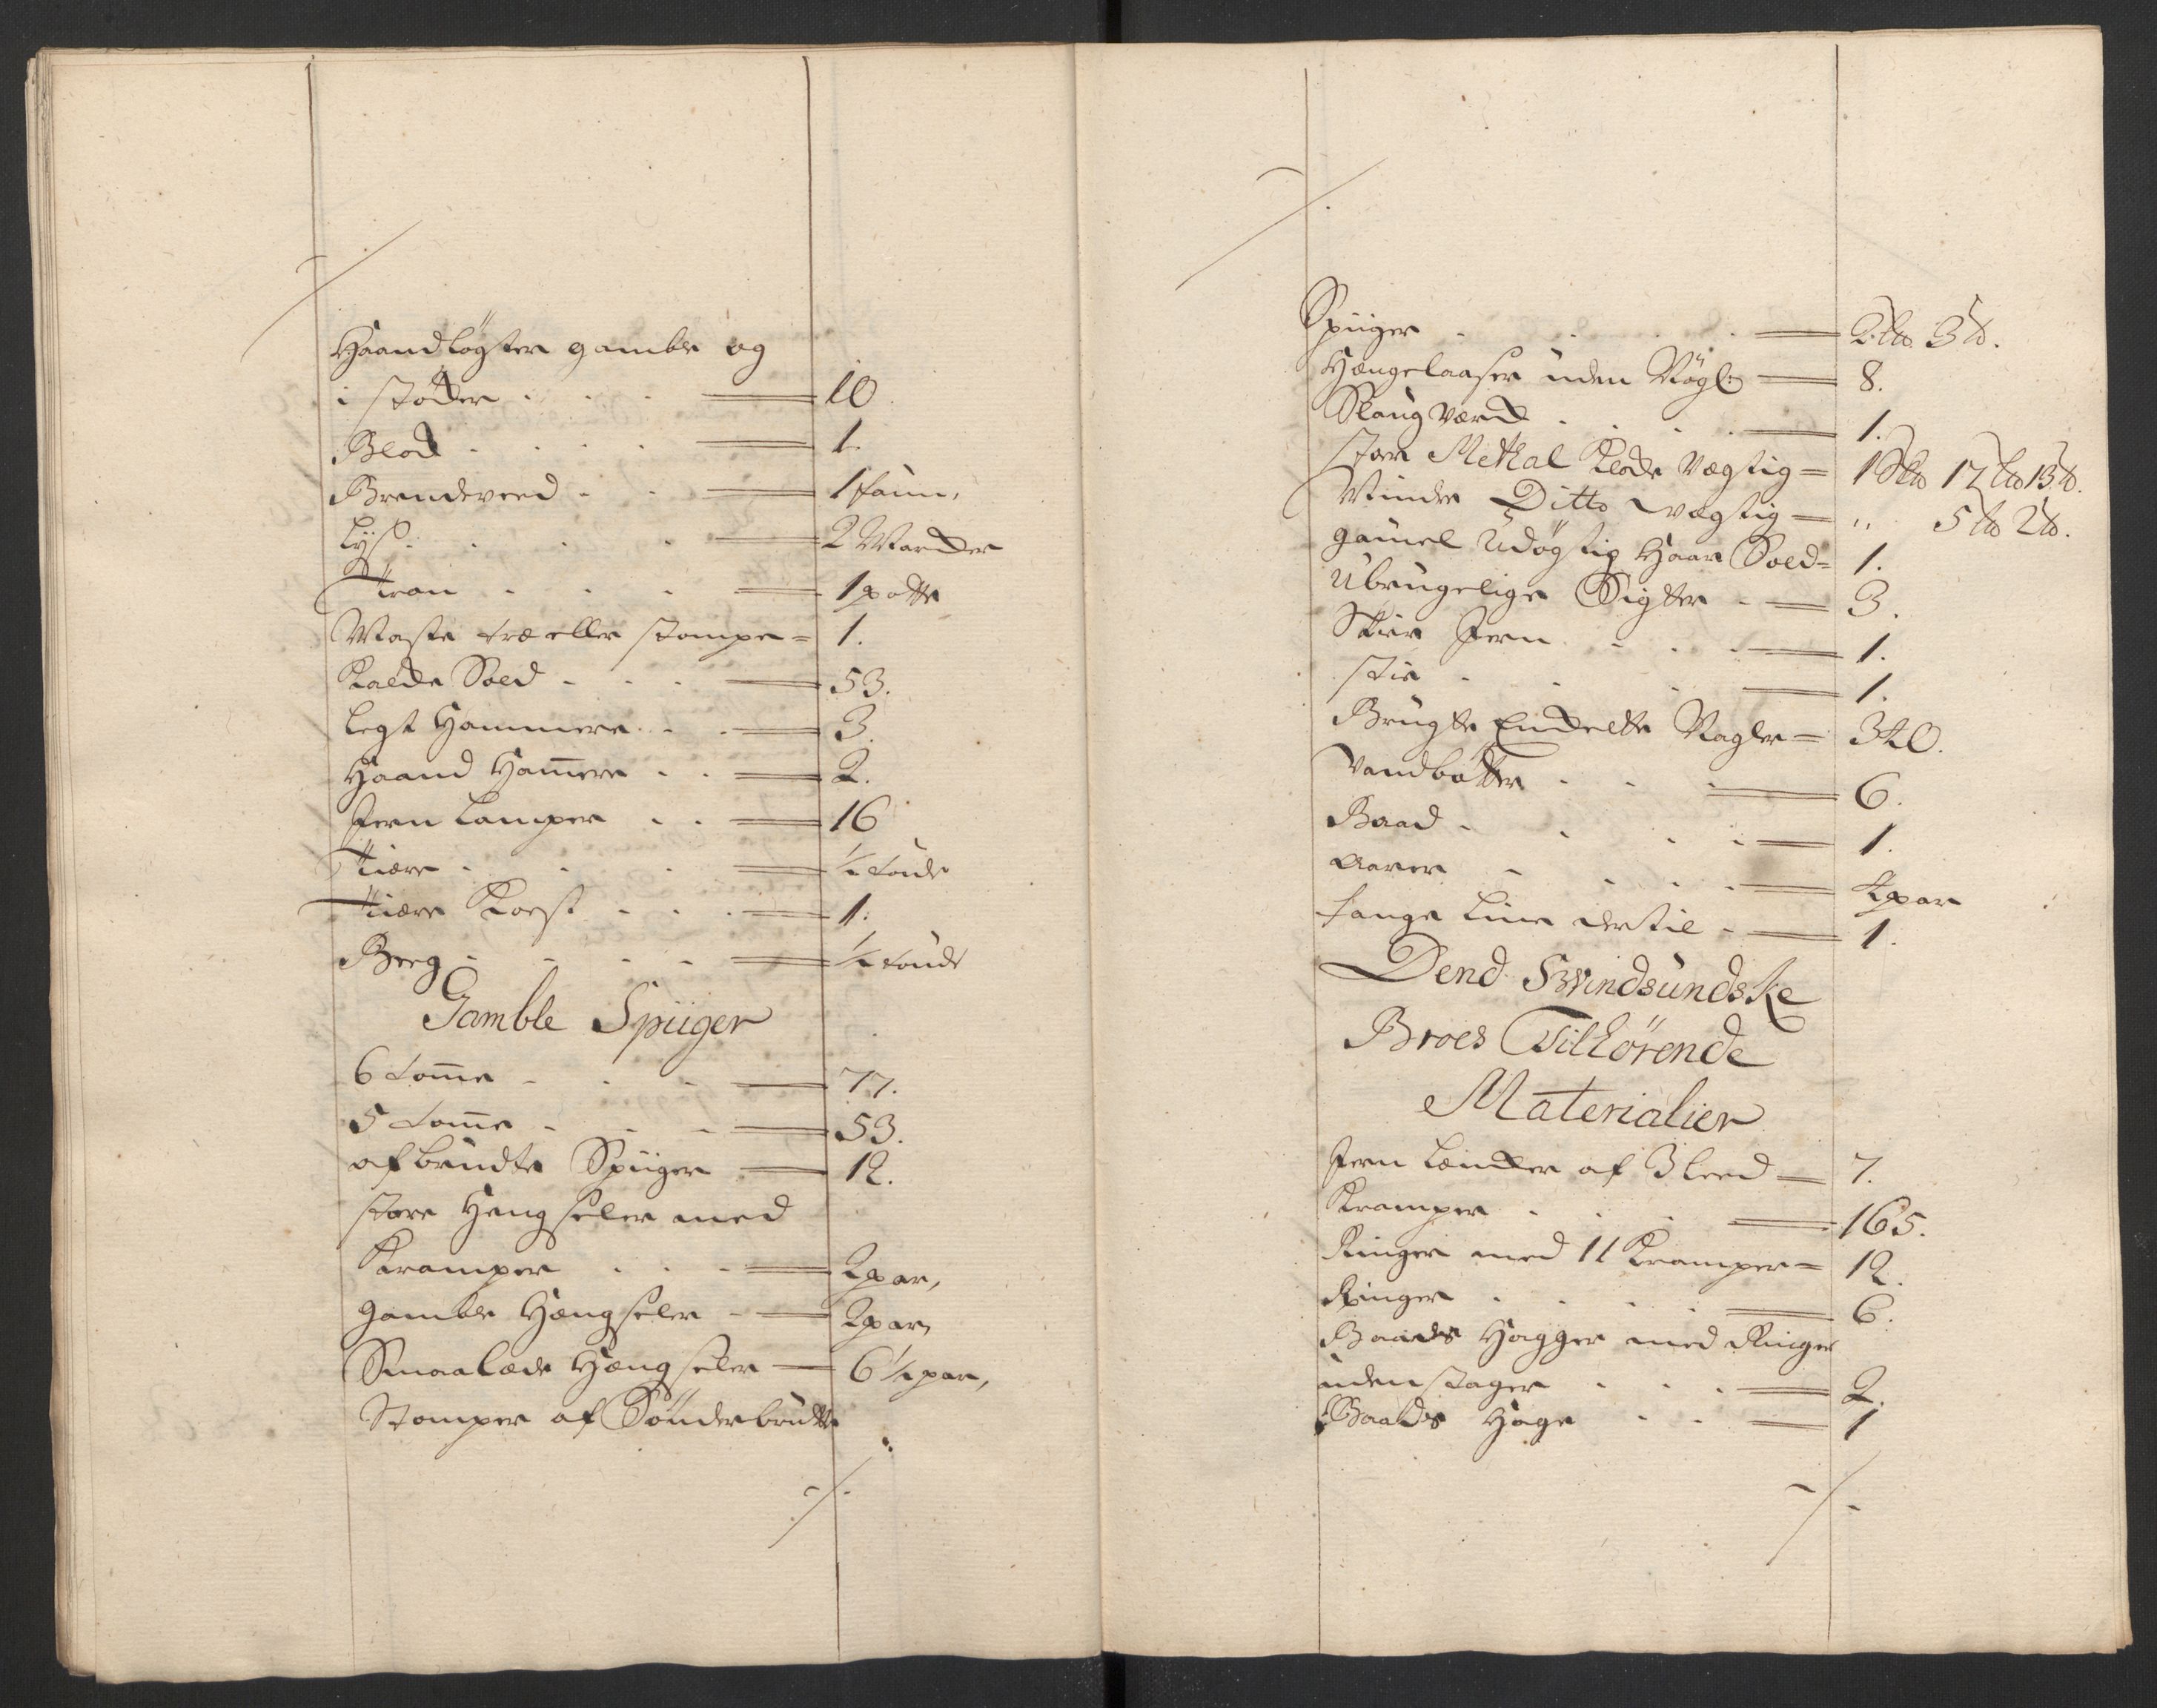 Haandløgter gamble og
i støcker = 10.
Blod = 1.
Brendeveed = 1 faun,
Lyß = 2 Marcker
Tran = 1 potte
Maste træ eller stompe = 1.
Kalde Sold = 53.
Legt Hammere = 3.
Haand Hamere = 2.
Jern Lamper = 16
Tiære = 1/2 tønde
Tiære Koest = 1.
Beeg = 1/2 tønde
Gamble Spiiger
6 tome = 77.
5 tome = 53.
afbrudte Spiiger = 12.
store Hengseler med
Kramper = 2 par,
gamble Hængseler = 2 par,
Smaa læde Hængseler = 6 1/2 par,
Stomper af Sønderbrudte
Spiiger = 2 L℔ 3 ℔.
Hængelaaser uden Nøgle = 8.
Slaugværck = 1.
stor Methal Klode vægtig = 1 Sk℔ 17 L℔ 13 ℔.
Mindre Ditto vægtig = " 5 L℔ 2 ℔.
gamel Udøgtig Haar Sold = 1.
Ubrugelige Sigter = 3.
Skier Jern = 1.
stie = 1.
Brugte Nagler = 340.
Vandbøtter = 6.
Baad = 1.
Aarer = 4 par
Fange Line dertil = 1.
Dend Swindsundske
Broes Tilhørende
Materialier
Jern Læncker af 3 Leed = 7.
Kramper = 165.
Ringer med 11 Kramper = 12.
Ringer = 6.
Baads Hagger med Ringer
uden stager = 2.
Baads Hage = 1